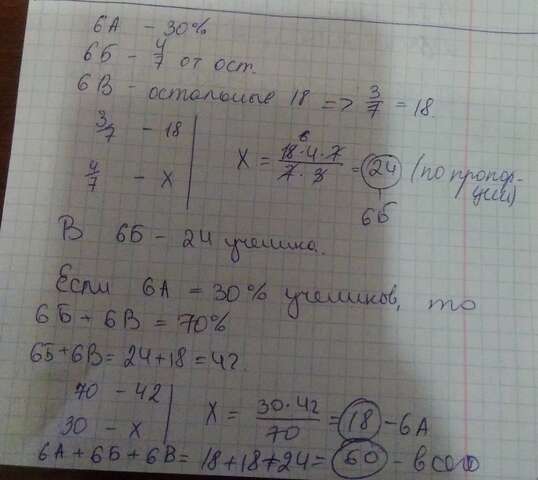 6А - 30%
6Б - 4/7 от ост.
6В - остальные 18 => 3/7 = 18.
3/7 - 18
4/7 - х
х = 18·4·7 / 7·3 = 24 (по пропор-
ции)
6
6Б
В 6Б - 24 ученика.
Если 6А = 30% учеников, то
6Б + 6В = 70%
6Б+6В = 24+18 = 42
70 - 42
30 - х
х = 30·42 / 70 = 18 - 6А
6А + 6Б + 6В = 18+18+24 = 60 - всего